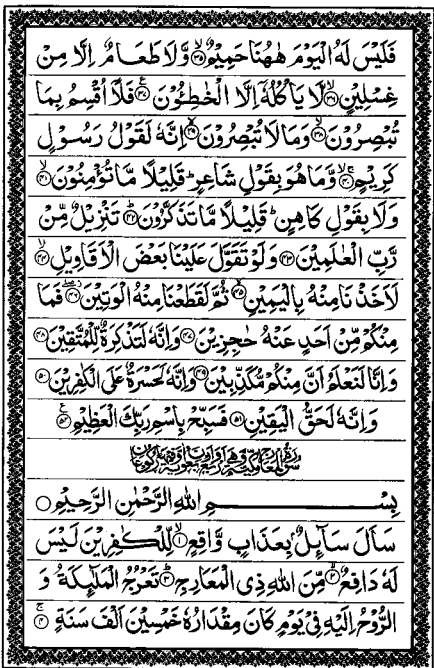 فَلَيْسَ لَهُ الْيَوْمَ هٰهُنَا حَمِيْمٌ ۙ﴿۳۵﴾ وَّلَا طَعَامٌ اِلَّا مِنْ
غِسْلِيْنٍ ۙ﴿۳۶﴾ لَّا يَاْكُلُهٗۤ اِلَّا الْخٰطِـُٔوْنَ ۠﴿۳۷﴾ فَلَاۤ اُقْسِمُ بِمَا
تُبْصِرُوْنَ ۙ﴿۳۸﴾ وَمَا لَا تُبْصِرُوْنَ ۙ﴿۳۹﴾ اِنَّهٗ لَقَوْلُ رَسُوْلٍ
كَرِيْمٍ ۚۙ﴿۴۰﴾ وَّمَا هُوَ بِقَوْلِ شَاعِرٍ ؕ قَلِيْلًا مَّا تُؤْمِنُوْنَ ۙ﴿۴۱﴾
وَلَا بِقَوْلِ كَاهِنٍ ؕ قَلِيْلًا مَّا تَذَكَّرُوْنَ ؕ﴿۴۲﴾ تَنْزِيْلٌ مِّنْ
رَّبِّ الْعٰلَمِيْنَ ﴿۴۳﴾ وَلَوْ تَقَوَّلَ عَلَيْنَا بَعْضَ الْاَقَاوِيْلِ ۙ﴿۴۴﴾
لَاَخَذْنَا مِنْهُ بِالْيَمِيْنِ ۙ﴿۴۵﴾ ثُمَّ لَقَطَعْنَا مِنْهُ الْوَتِيْنَ ؗۖ﴿۴۶﴾ فَمَا
مِنْكُمْ مِّنْ اَحَدٍ عَنْهُ حٰجِزِيْنَ ﴿۴۷﴾ وَاِنَّهٗ لَتَذْكِرَةٌ لِّلْمُتَّقِيْنَ ﴿۴۸﴾
وَاِنَّا لَنَعْلَمُ اَنَّ مِنْكُمْ مُّكَذِّبِيْنَ ﴿۴۹﴾ وَاِنَّهٗ لَحَسْرَةٌ عَلَى الْكٰفِرِيْنَ ﴿۵۰﴾
وَاِنَّهٗ لَحَقُّ الْيَقِيْنِ ﴿۵۱﴾ فَسَبِّحْ بِاسْمِ رَبِّكَ الْعَظِيْمِ ۠﴿۵۲﴾
بِسْمِ اللّٰهِ الرَّحْمٰنِ الرَّحِيْمِ
سَاَلَ سَآئِلٌۢ بِعَذَابٍ وَّاقِعٍ ۙ﴿۱﴾ لِّلْكٰفِرِيْنَ لَيْسَ
لَهٗ دَافِعٌ ۙ﴿۲﴾ مِّنَ اللّٰهِ ذِى الْمَعَارِجِ ؕ﴿۳﴾ تَعْرُجُ الْمَلٰٓئِكَةُ وَ
الرُّوْحُ اِلَيْهِ فِىْ يَوْمٍ كَانَ مِقْدَارُهٗ خَمْسِيْنَ اَلْفَ سَنَةٍ ۚ﴿۴﴾